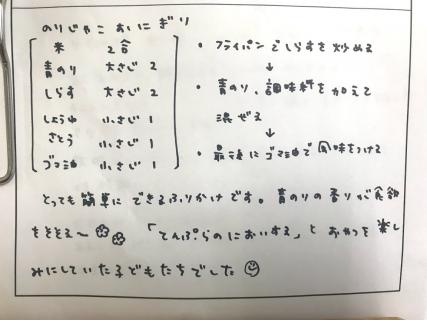 のりじゃこ おにぎり
米 2合
青のり 大さじ 2
しらす 大さじ 2
しょうゆ 小さじ 1
さとう 小さじ 1
ゴマ油 小さじ 1
・ フライパンでしらすを炒める
↓
・ 青のり、調味料を加えて
混ぜる
↓
・ 最後にゴマ油で風味をつける
とっても簡単にできるふりかけです。青のりの香りが食欲
をそそる〜 「てんぷらのにおいする」と おやつを楽し
みにしていた子どもたちでした